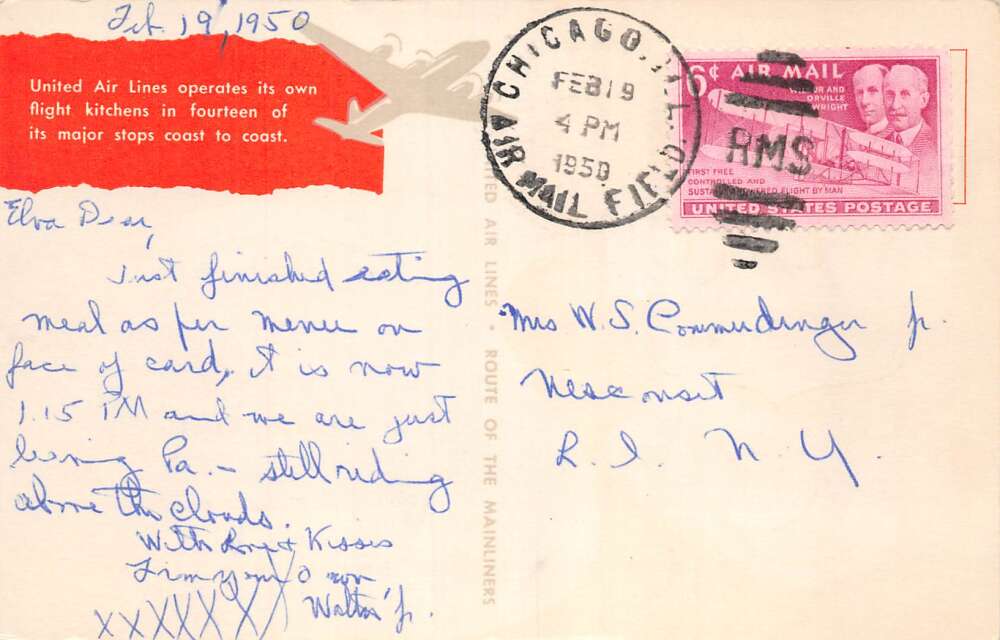 Feb. 19, 1950
United Air Lines operates its own
flight kitchens in fourteen of
its major stops coast to coast.
CHICAGO, ILL.
FEB 19
4 PM
1950
AIR MAIL FIELD
RMS
6¢ AIR MAIL
WILBUR AND
ORVILLE
WRIGHT
FIRST FREE
CONTROLLED AND
SUSTAINED POWERED FLIGHT BY MAN
UNITED STATES POSTAGE
Elva Dear,
Just finished eating
meal as per menu on
face of card. It is now
1.15 PM and we are just
leaving Pa. - still riding
above the clouds.
With Love & Kisses
From your own
Walter Jr.
XXXXXXX
UNITED AIR LINES • ROUTE OF THE MAINLINERS
Mrs W. S. Commerdinger Jr.
Nesconset
L. I. N. Y.